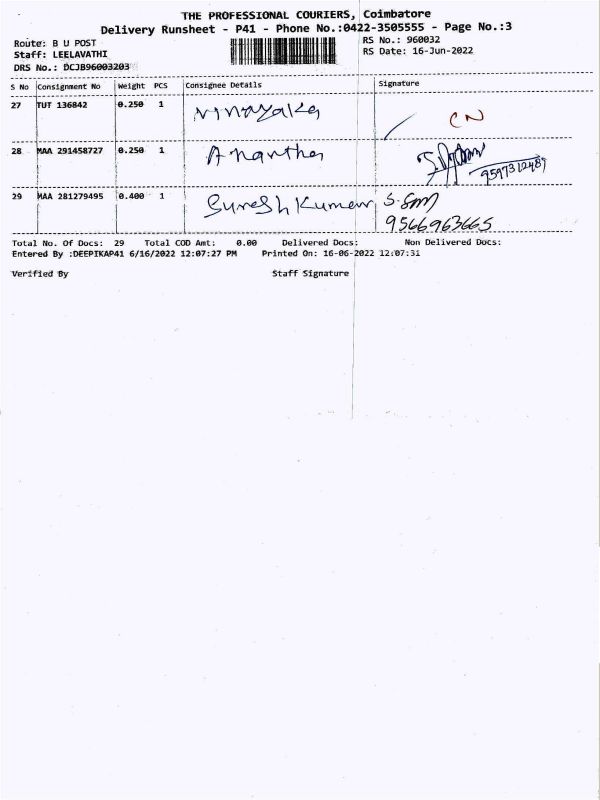 THE PROFESSIONAL COURIERS, Coimbatore
Delivery Runsheet - P41 - Phone No.:0422-3505555 - Page No.:3
Route: B U POST
RS No.: 960032
Staff: LEELAVATHI
RS Date: 16-Jun-2022
DRS No.: DCJB96003203
S No Consignment No Weight PCS Consignee Details Signature
27 TUT 136842 0.250 1 Vinayaka CN
28 MAA 291458727 0.250 1 Anantha
29 MAA 281279495 0.400 1 Suresh Kumar
9566963665
Total No. Of Docs: 29 Total COD Amt: 0.00 Delivered Docs: Non Delivered Docs:
Entered By :DEEPIKAP41 6/16/2022 12:07:27 PM Printed On: 16-06-2022 12:07:31
Verified By Staff Signature